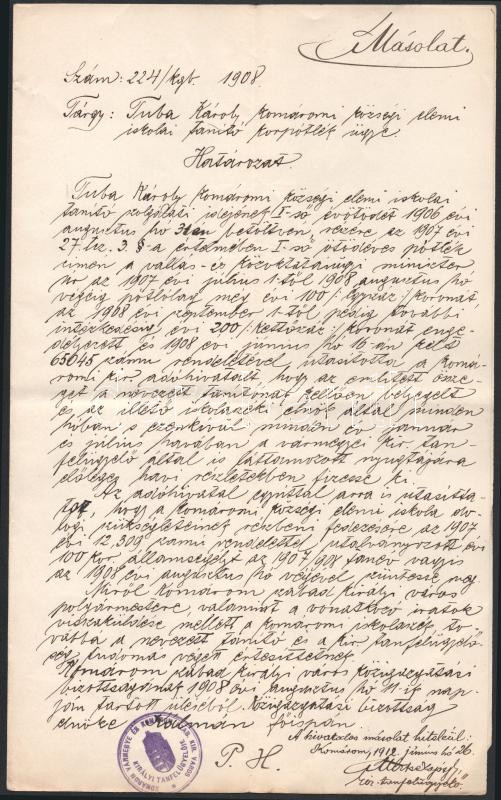 Másolat.
Szám: 224/kgb. 1908.
Tárgy: Tuba Károly komáromi községi elemi
iskolai tanító korpótlék ügye.
Határozat.
Tuba Károly komáromi községi elemi iskolai
tanító szolgálati idejének I-ső évötödét 1906 évi
augusztus hó 31en betöltvén, részére az 1907 évi
27. tcz. 3. §-a értelmében I-ső ötödéves pótlék
címén a vallás- és közoktatásügyi miniszter
úr az 1907 évi július 1-től 1908 augusztus hó
végéig pótlólag még évi 100 /:egyszáz:/ koronát,
az 1908 évi szeptember 1-től pedig további
intézkedésig évi 200 /:kettőszáz:/ koronát enge-
délyezett és 1908 évi június hó 16-án kelt
65045 számu rendeletével utasította a komá-
romi kir. adóhivatalt, hogy az említett össze-
get a nevezett tanítónak kellően bélyegelt
és az illető iskolaszéki elnök által minden
hóban s ezenkívül minden év január
és július havában a vármegyei kir. tan-
felügyelő által is láttamozott nyugtájára
előleges havi részletekben fizesse ki.
Az adóhivatal egyuttal arra is utasítta-
tott, hogy a komáromi községi elemi iskola do-
logi szükségleteinek részbeni fedezésére az 1907
évi 12,309 számú rendelettel utalványozott évi
100 kor. államsegélyt az 1907/908 tanév vagyis
az 1908 évi augusztus hó végével szüntesse meg.
Miről Komárom szabad királyi város
polgármestere, valamint a vonatkozó iratok
visszaküldése mellett a komáromi iskolaszék to-
vábbá a nevezett tanító és a kir. tanfelügyelő-
ség tudomás végett értesíttetnek.
Komárom szabad királyi város közigazgatási
bizottságának 1908 évi augusztus hó 11-ik nap-
ján tartott üléséből. Közigazgatási bizottság
elnöke Kálmán főispán.
A hivatalos másolat hiteléül:
Komárom, 1912 június hó 26.
P. H.
kir. tanfelügyelő
KIRÁLYI TANFELÜGYELŐSÉG